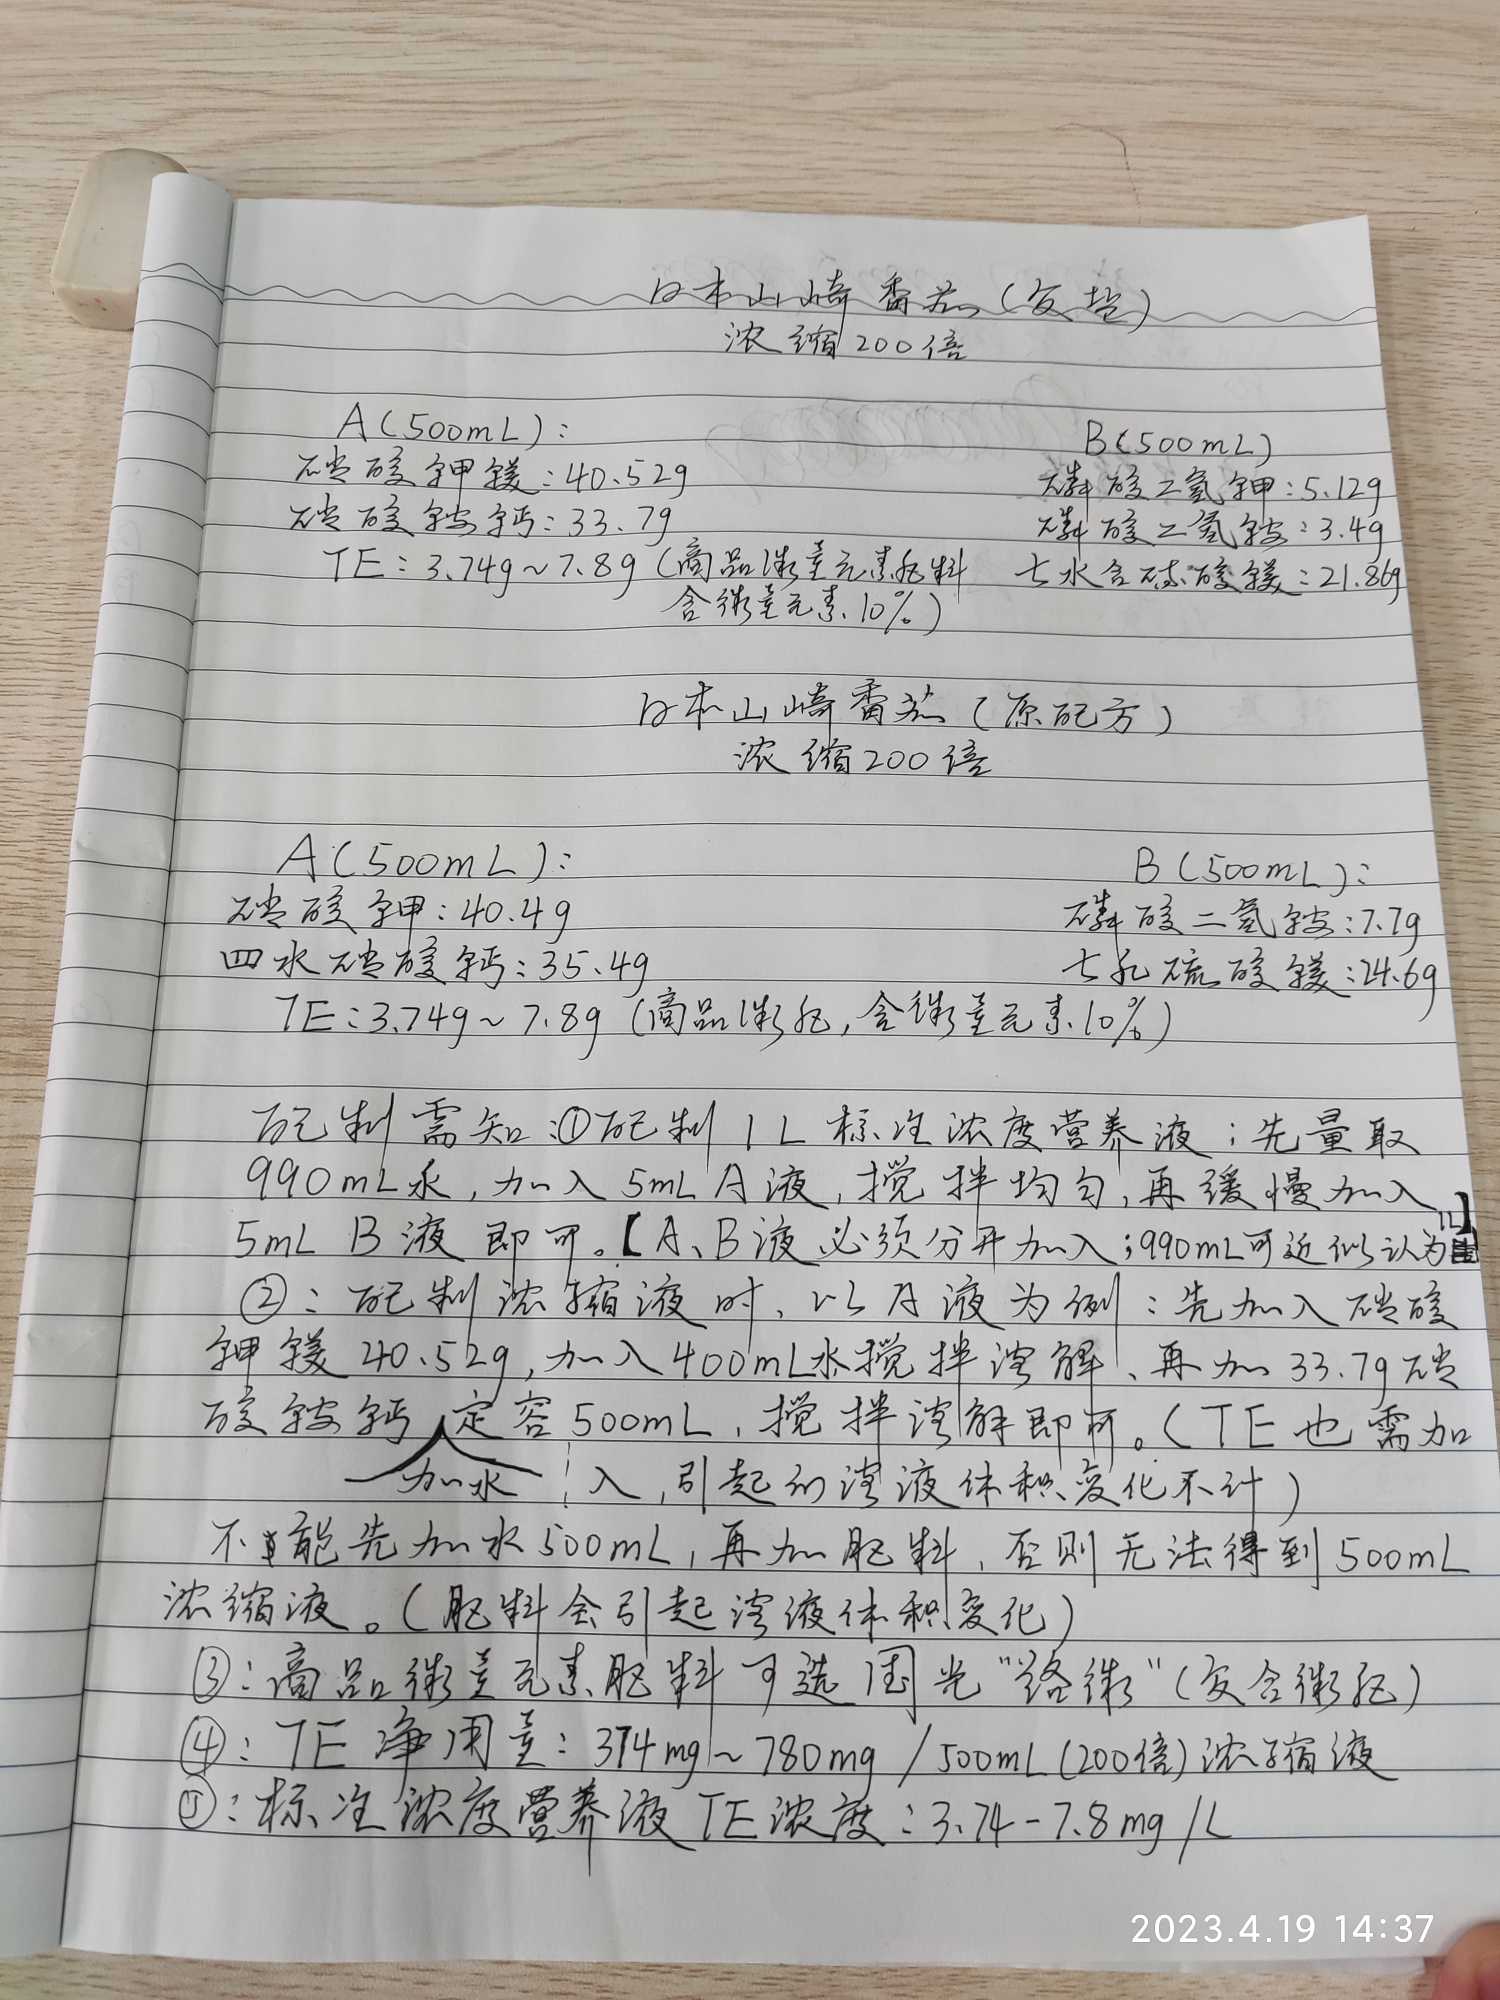 日本山崎番茄(复盐)
浓缩200倍
A(500mL):
B(500mL)
硝酸钾镁:40.52g
磷酸二氢钾:5.12g
硝酸铵钙:33.7g
磷酸二氢铵:3.4g
TE:3.74g~7.8g(商品微量元素肥料
七水合硫酸镁:21.86g
含微量元素10%)
日本山崎番茄(原配方)
浓缩200倍
A(500mL):
B(500mL):
硝酸钾:40.4g
磷酸二氢铵:7.7g
四水硝酸钙:35.4g
七水硫酸镁:24.6g
TE:3.74g~7.8g(商品微肥,含微量元素10%)
配制需知:①配制1L标准浓度营养液:先量取
990mL水,加入5mLA液,搅拌均匀,再缓慢加入
5mL B液即可。【A、B液必须分开加入;990mL可近似认为1L】
②:配制浓缩液时,以A液为例:先加入硝酸
钾镁40.52g,加入400mL水搅拌溶解、再加33.7g硝
酸铵钙 加水定容500mL,搅拌溶解即可。(TE也需加
入,引起的溶液体积变化不计)
不能先加水500mL,再加肥料,否则无法得到500mL
浓缩液。(肥料会引起溶液体积变化)
③:商品微量元素肥料可选国光"络微"(复合微肥)
④:TE净用量:374mg~780mg/500mL(200倍)浓缩液
⑤:标准浓度营养液TE浓度:3.74-7.8mg/L
2023.4.19 14:37